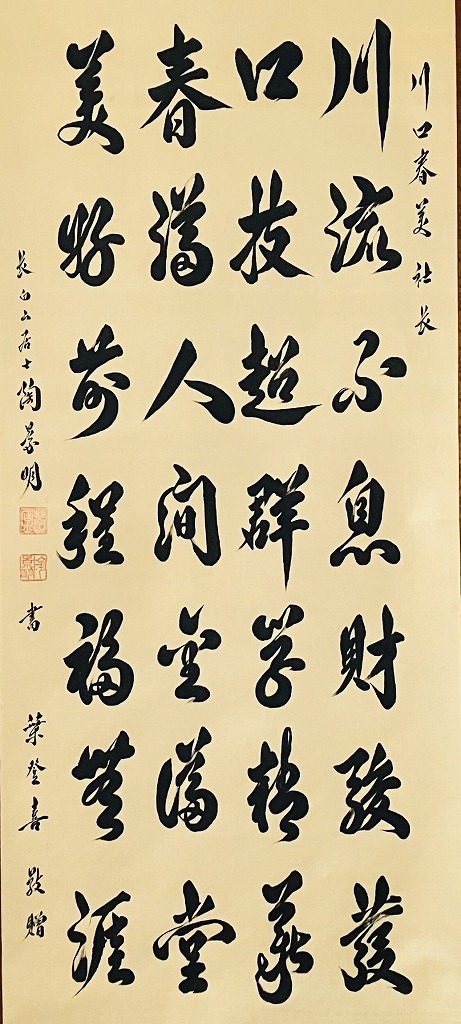 川口春美社長
川流不息財駿發
口技超群精
春滿人間金滿堂
美好前程福無涯
長白山居士陶明
書
葉登喜
敬贈